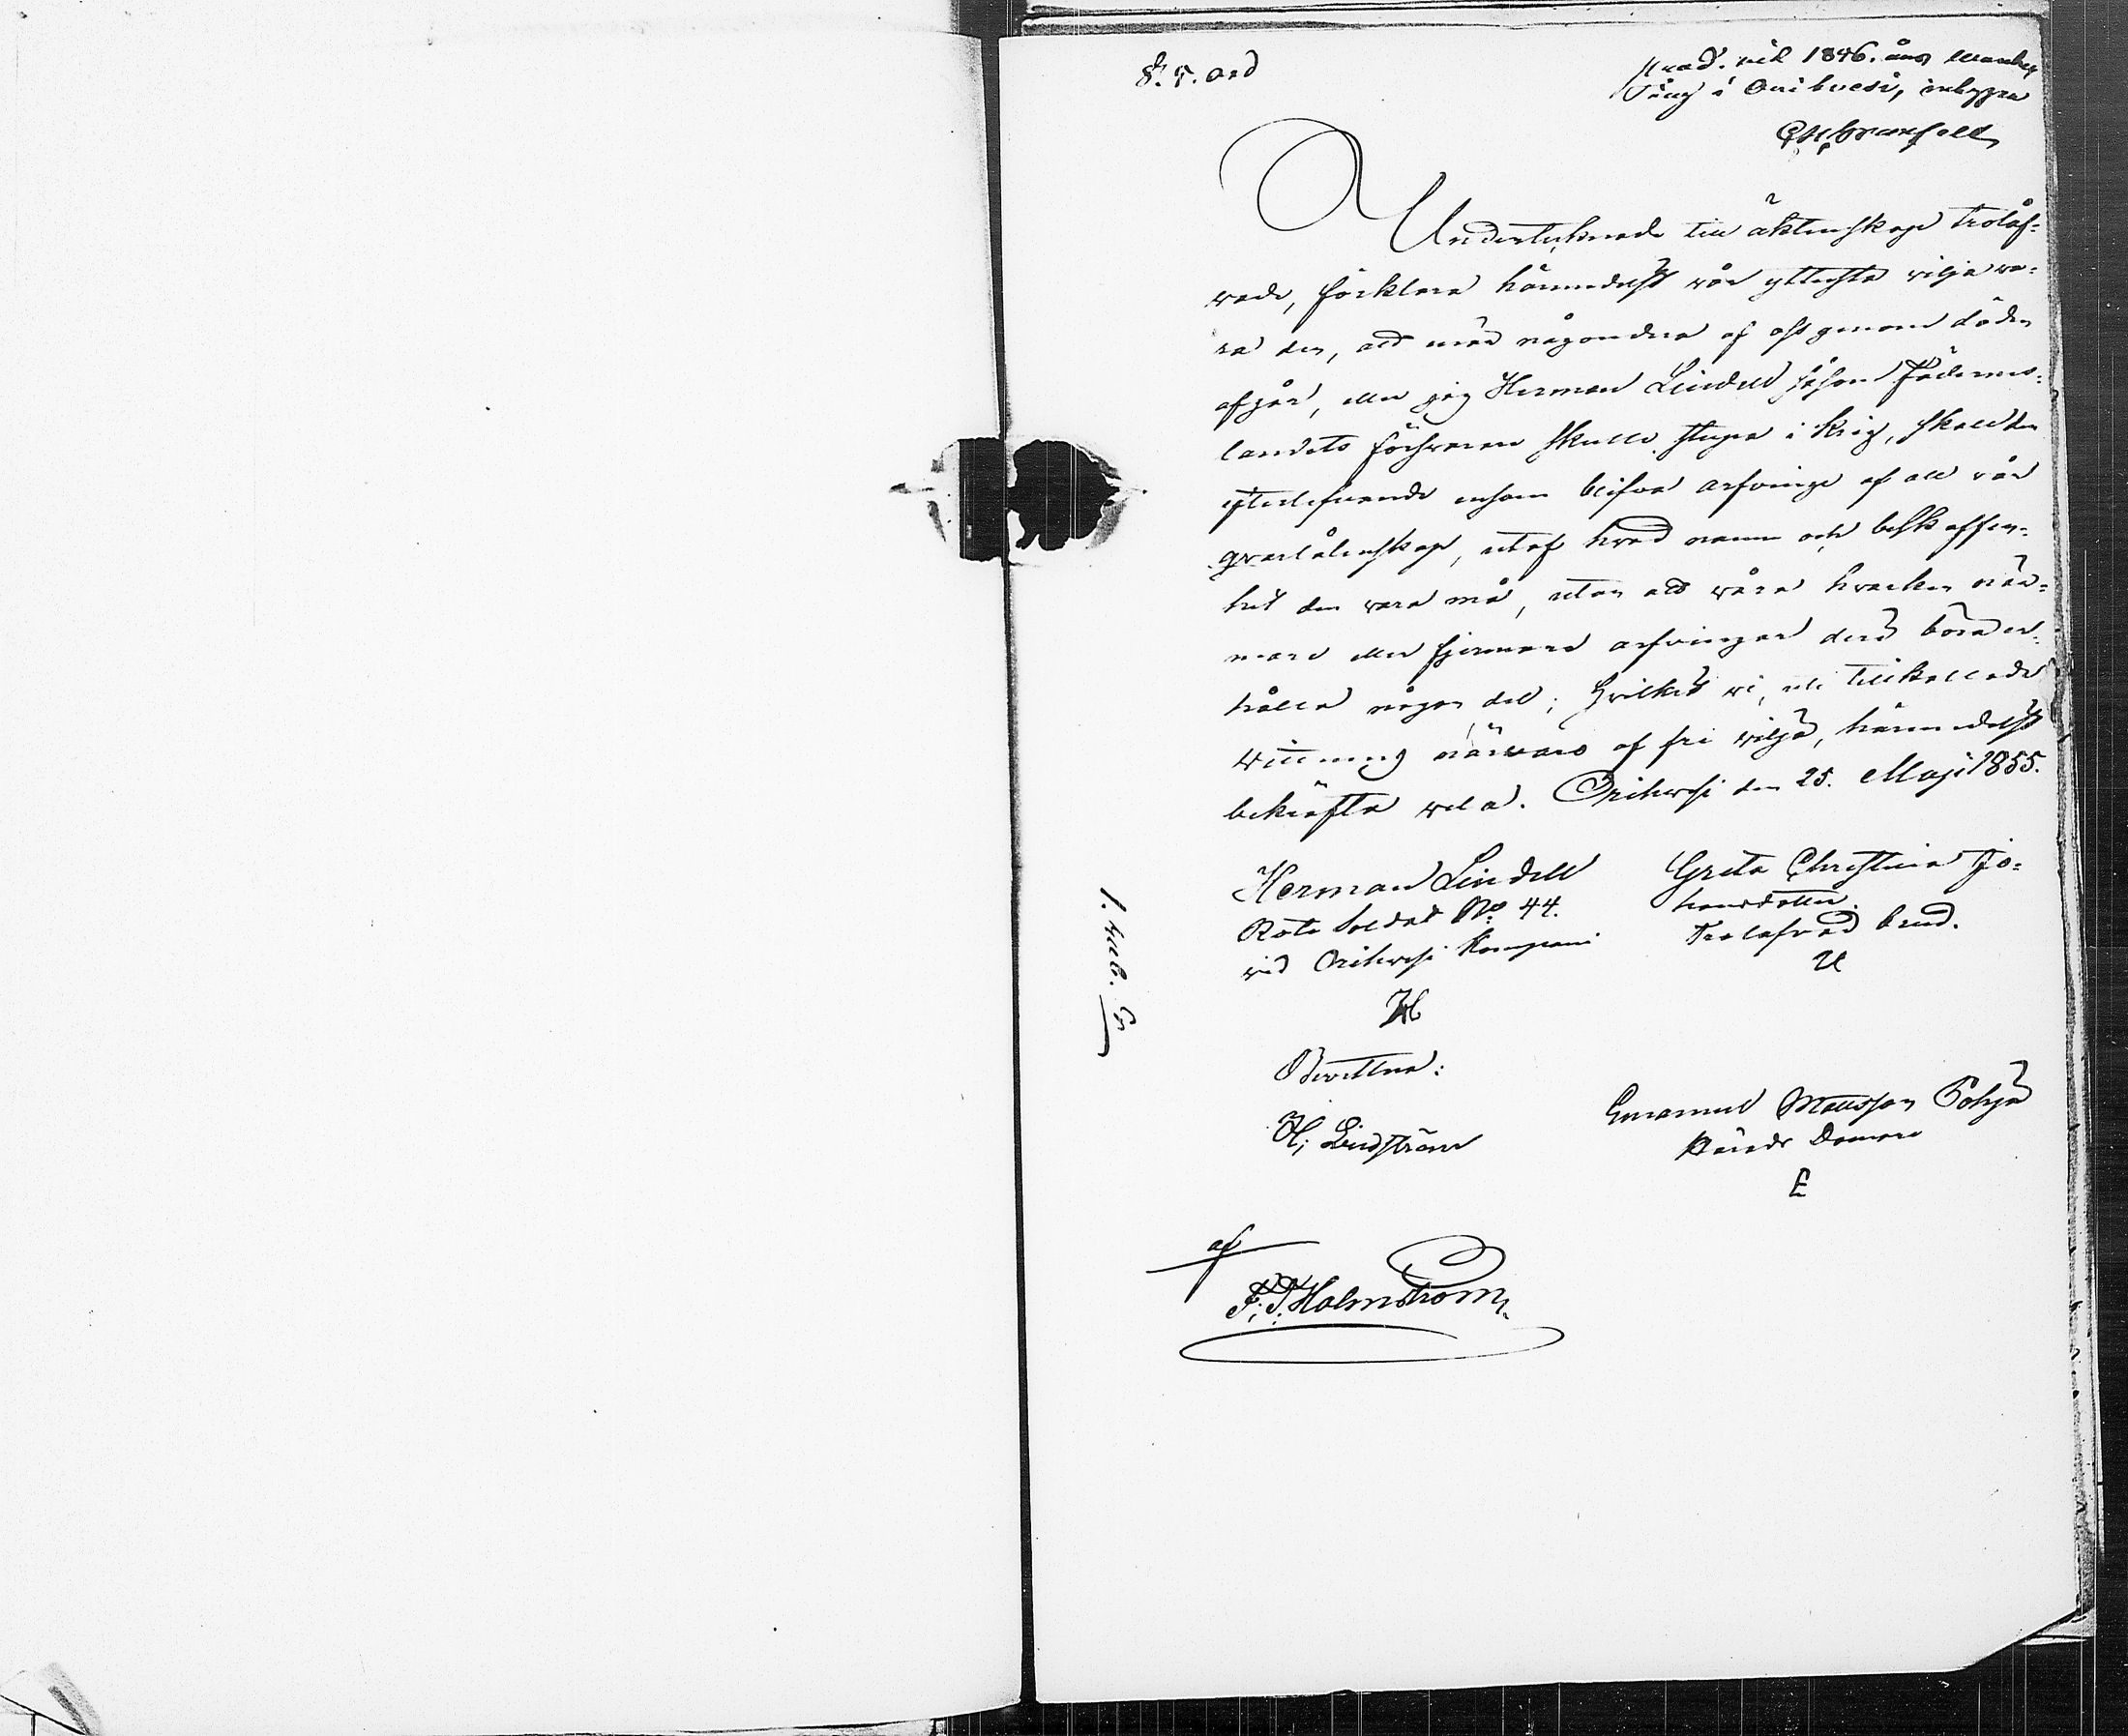 §. 5. ord
1846. års
Ting i Orihvesi, inlyzen
Undertecknade till äktenskap trolåf-
wade, förklara härmedelst vår yttersta vilja va-
ra den, att när någondera af oss genom döden
afgår, eller jag Herman Lindell såsom Fädernes-
landets försvarare skulle stupa i krig, skall den
efterlefvande ensam blifva arfvinge af all vår
qvarlåtenskap, utaf hvad namn och beskaffen-
het den vara må, utan att våra hvarken när-
mare eller fjermare arfvingar deraf böra er-
hålla någon del; Hvilket vi, uti tillkallade
wittnens närvaro af fri vilja, härmedelst
bekräfta vela. Orihvesi den 25. Maji 1855.
Herman Lindell
Rote Soldat No 44.
vid Orihvesi Kompani
H
Greta Christina Jo-
hansdotter.
Trolofvad brud.
Bevittna:
H. Lindström
Emanuel Mattsson Pohja
Härads Domare
E
af
F. T. Holmström
1. rub. S